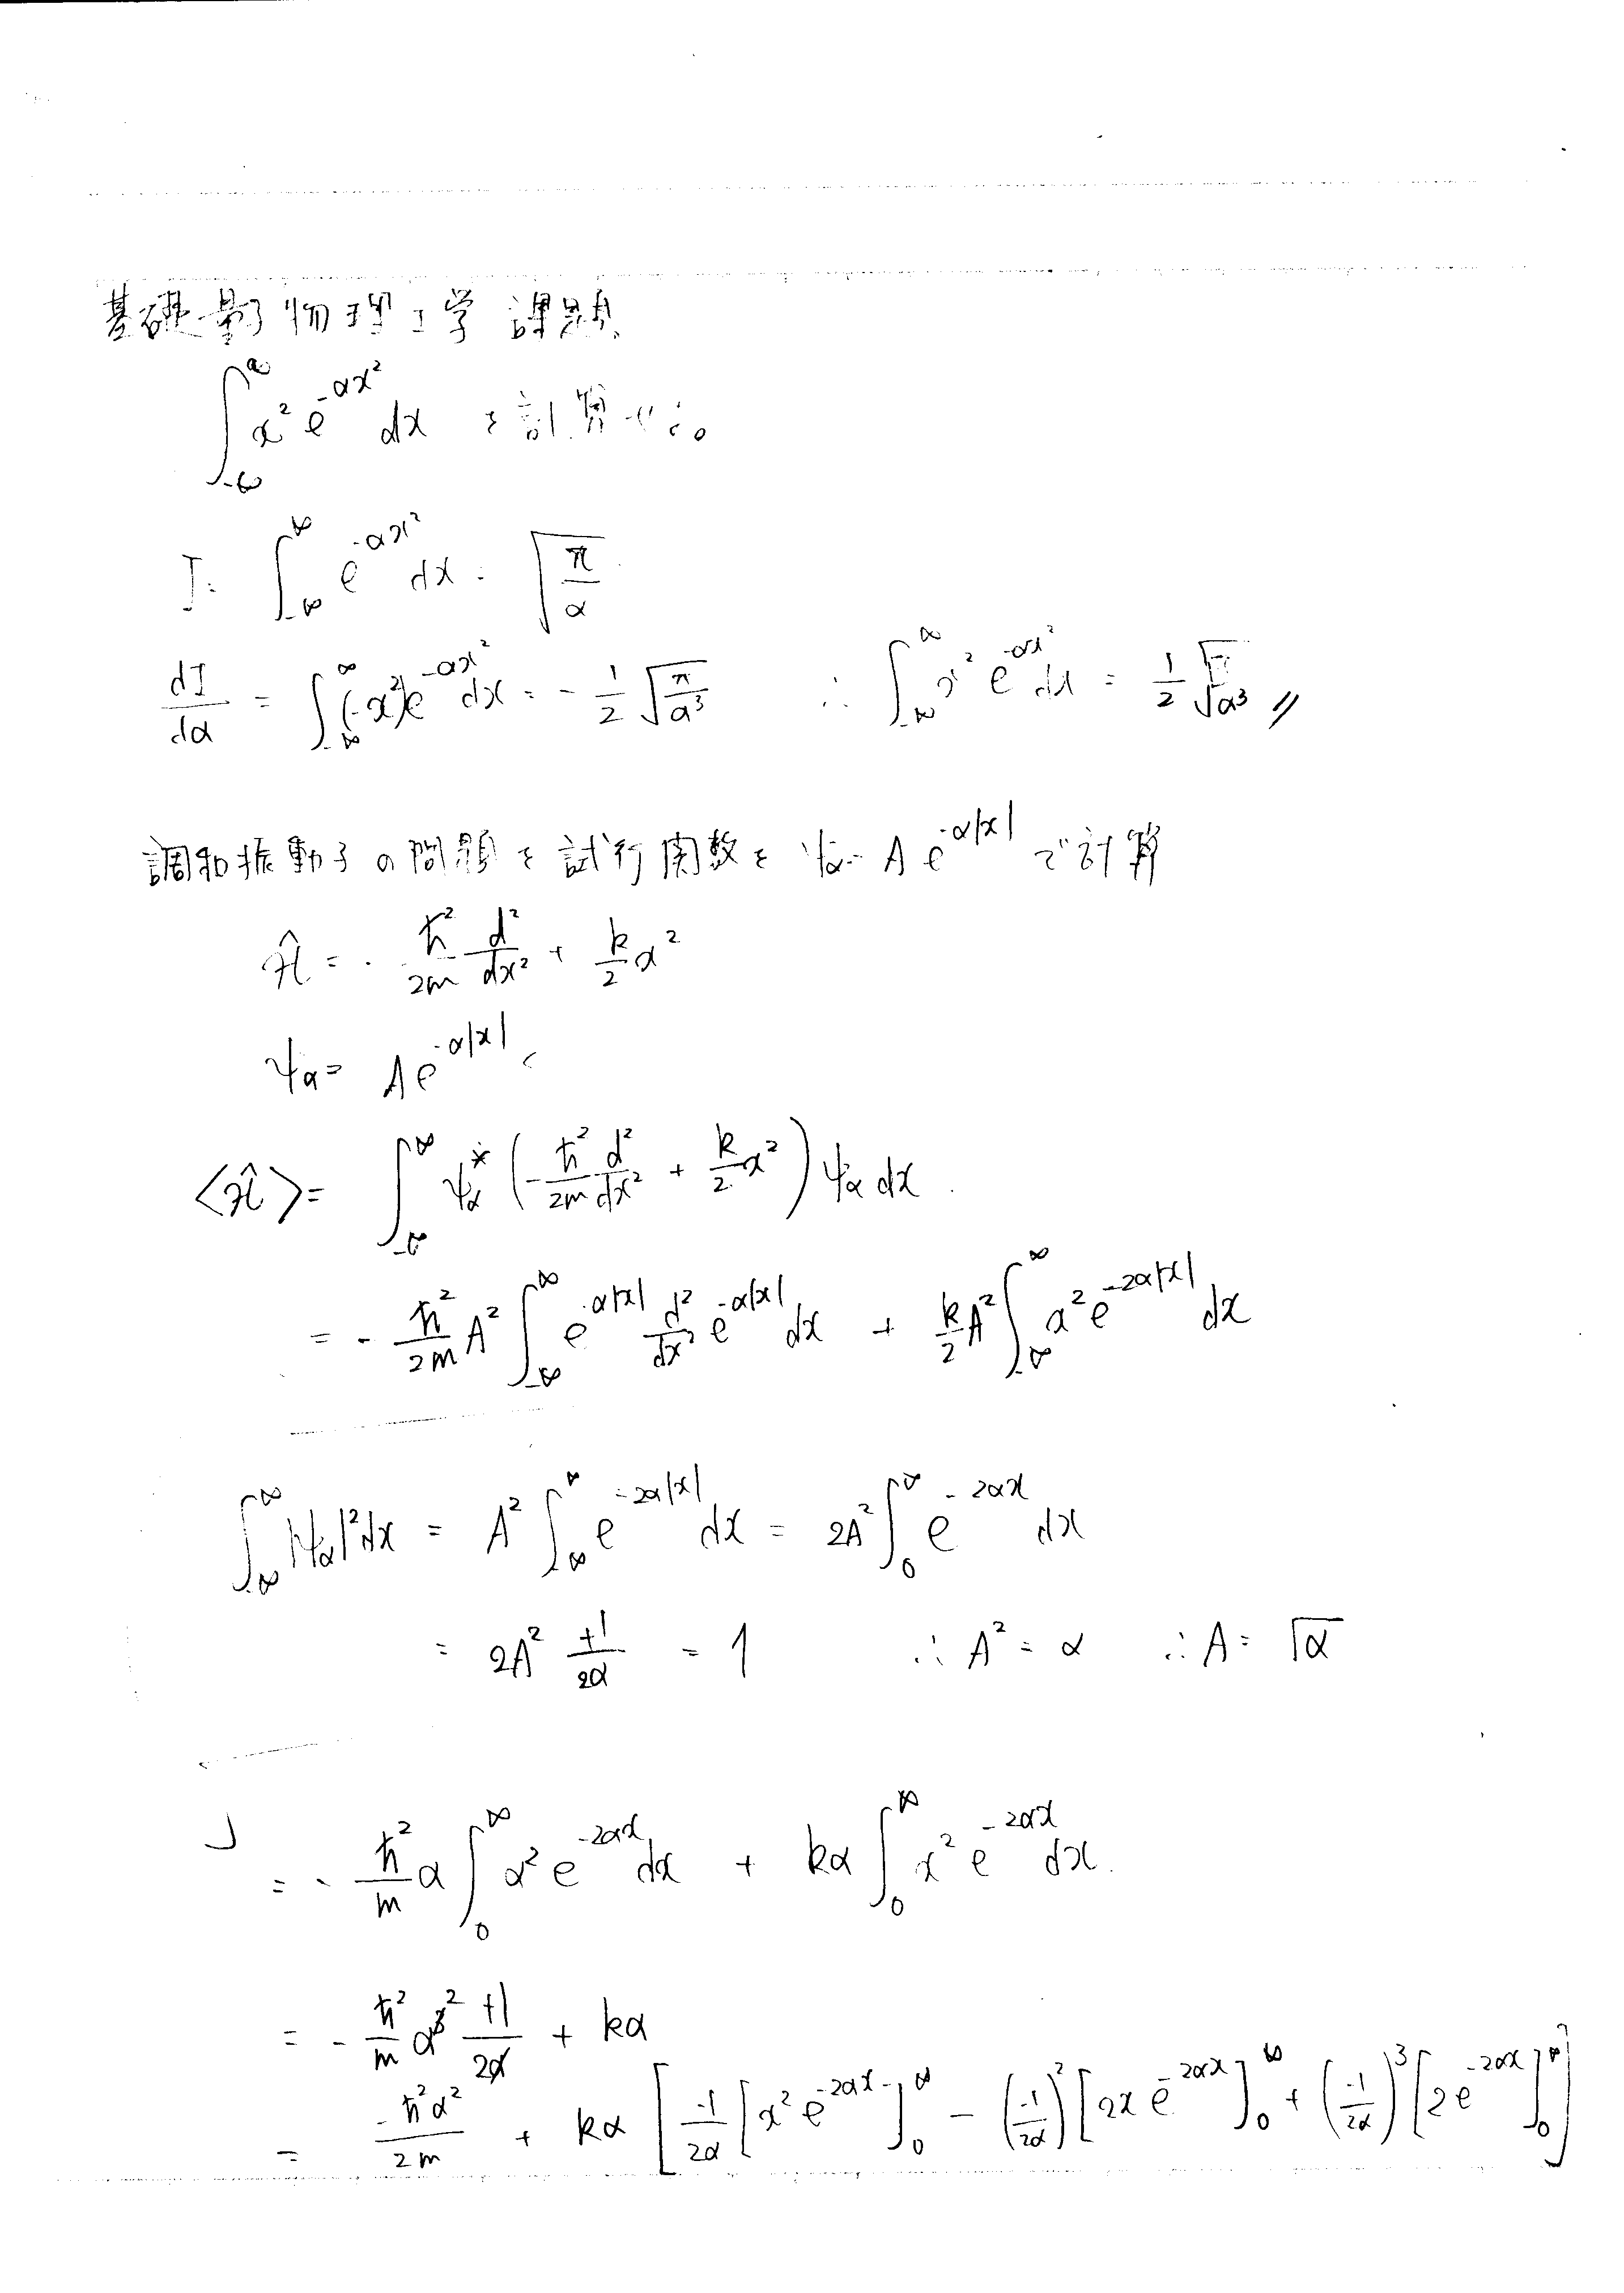 基礎量子物理工学 課題
∫_{-∞}^{∞} x² e^{-αx²} dx を計算せよ。
I = ∫_{-∞}^{∞} e^{-αx²} dx = √(π/α)
dI/dα = ∫_{-∞}^{∞} (-x²) e^{-αx²} dx = - 1/2 √(π/α³) ∴ ∫_{-∞}^{∞} x² e^{-αx²} dx = 1/2 √(π/α³) //
調和振動子の問題を試行関数を ψα = A e^{-α|x|} で計算
Ĥ = - ħ²/2m d²/dx² + k/2 x²
ψα = A e^{-α|x|}
<Ĥ> = ∫_{-∞}^{∞} ψα* (- ħ²/2m d²/dx² + k/2 x²) ψα dx
= - ħ²/2m A² ∫_{-∞}^{∞} e^{-α|x|} d²/dx² e^{-α|x|} dx + k/2 A² ∫_{-∞}^{∞} x² e^{-2α|x|} dx
∫_{-∞}^{∞} |ψα|² dx = A² ∫_{-∞}^{∞} e^{-2α|x|} dx = 2A² ∫_{0}^{∞} e^{-2αx} dx
= 2A² +1/2α = 1 ∴ A² = α ∴ A = √α
= - ħ²/m α ∫_{0}^{∞} α² e^{-2αx} dx + kα ∫_{0}^{∞} x² e^{-2αx} dx.
= - ħ²/m α² +1/2α + kα
= -ħ²α²/2m + kα [ -1/2α [x² e^{-2αx}]_{0}^{∞} - (-1/2α)² [2x e^{-2αx}]_{0}^{∞} + (-1/2α)³ [2e^{-2αx}]_{0}^{∞} ]